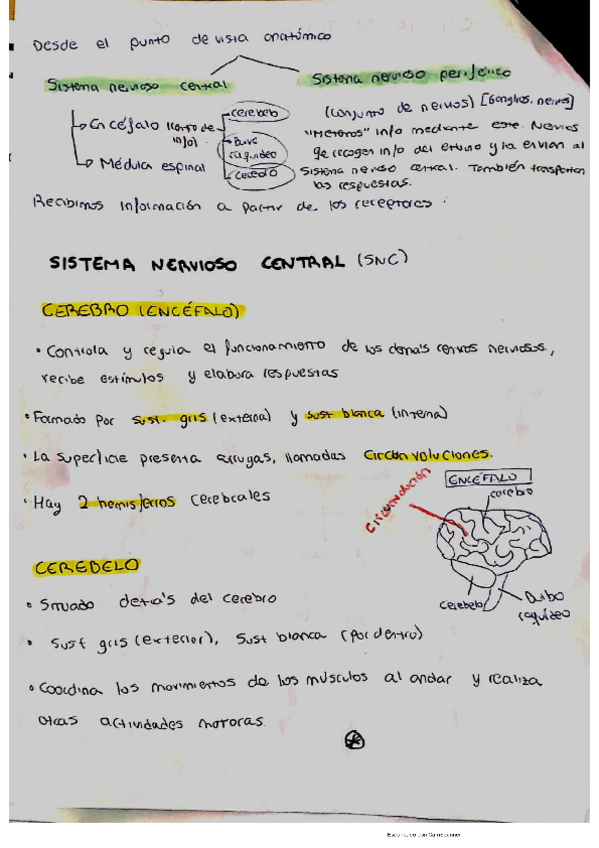 Desde el punto de vista anatómico
Sistema nervioso central
Encéfalo
Médula espinal
cerebelo
Bulbo raquídeo
cerebro
Sistema nervioso periférico
(conjunto de nervios) [Ganglios, nervios]
"Metemos" info mediante este. Nervios
que recogen info del entorno y la envían al
sistema nervioso central. También transportan
las respuestas.
Recibimos información a partir de los receptores.
SISTEMA NERVIOSO CENTRAL (SNC)
CEREBRO (ENCÉFALO)
• Controla y regula el funcionamiento de los demás centros nerviosos,
recibe estímulos y elabora respuestas
• Formado por sust. gris (externa) y sust blanca (interna)
• La superficie presenta arrugas, llamadas circunvoluciones.
• Hay 2 hemisferios cerebrales
ENCÉFALO
cerebro
circunvolución
cerebelo
Bulbo
raquídeo
CEREBELO
• Situado detrás del cerebro
• Sust gris (exterior), Sust blanca (por dentro)
• Coordina los movimientos de los músculos al andar y realiza
otras actividades motoras.
Escaneado con CamScanner